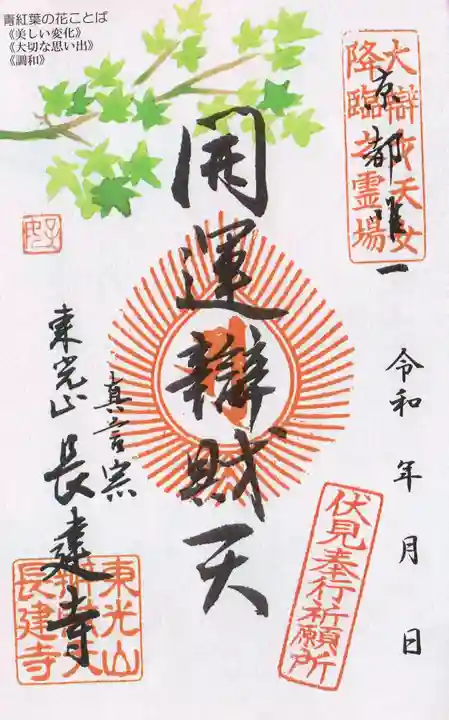 青紅葉の花ことば
《美しい変化》
《大切な思い出》
《調和》
大辯才天女
降臨之霊場
京都唯一
令和 年 月 日
伏見奉行祈願所
開運辯財天
真言宗
東光山 長建寺
東光山
辯財天
長建寺